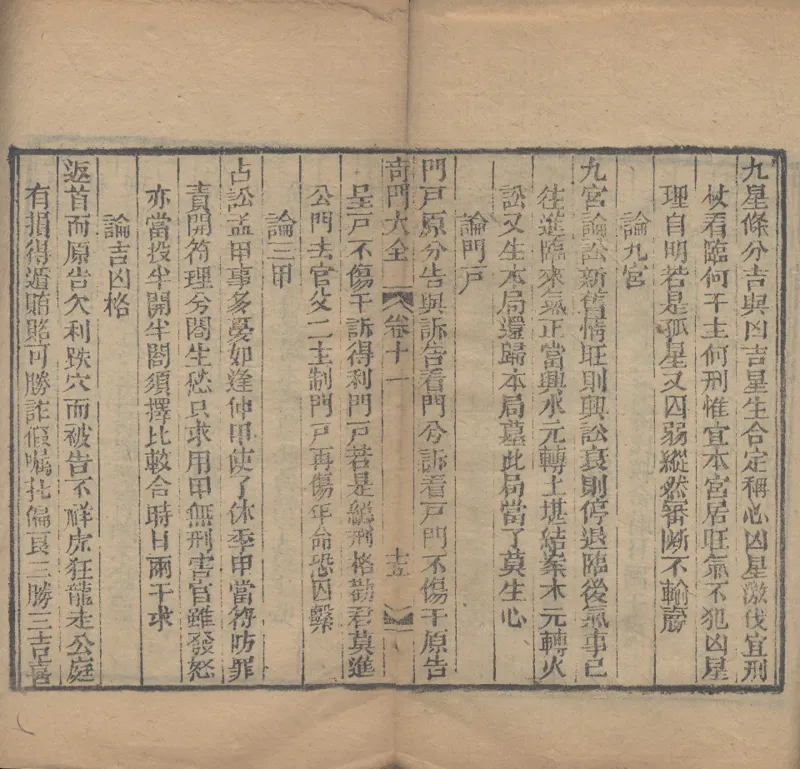 九星條分吉與凶吉星生合定稱心凶星激伐宜刑
杖看臨何干主何刑惟宜本宮居旺氣不犯凶星
理自明若是孤星又囚弱縱然審斷不輸贏
論九宮
九宮論訟新舊情旺則興訟衰則停退臨後氣事已
往進臨來氣正當興水元轉土堪結案木元轉火
訟又生本局還歸本局墓此局當了莫生心
論門戶
門戶原分告與訴告看門兮訴看戶門不傷干原告
奇門大全 卷十一 十五
呈戶不傷干訴得利門戶若是縱刑格勸君莫進
公門去官父二主制門戶再傷年命恐囚繫
論三甲
占訟孟甲事多憂如逢仲甲使了休季甲當符防罪
責開符理兮閤生愁只求用甲無刑害官雖發怒
亦當投半開半閤須擇比較合時日兩干求
論吉凶格
返首而原告欠利跌穴而被告不祥虎狂龍走公庭
有損得遁賄賂可勝詐假囑托偏哀三勝三吉喜